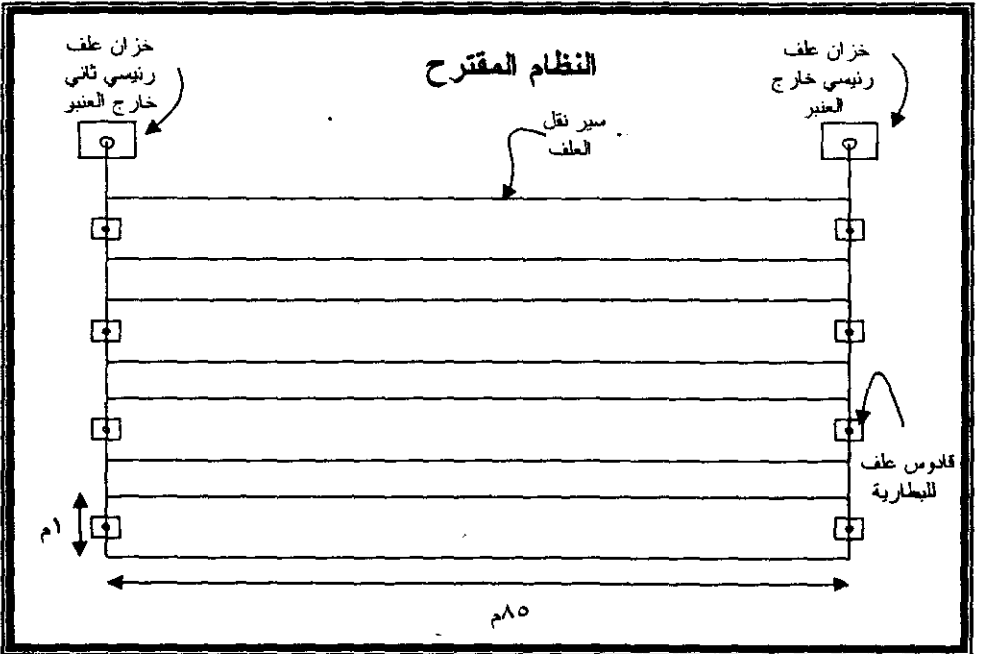 النظام المقترح
خزان علف
رئيسي خارج
العنبر
خزان علف
رئيسي ثاني
خارج العنبر
سير نقل
العلف
قادوس علف
للبطارية
١م
٨٥م